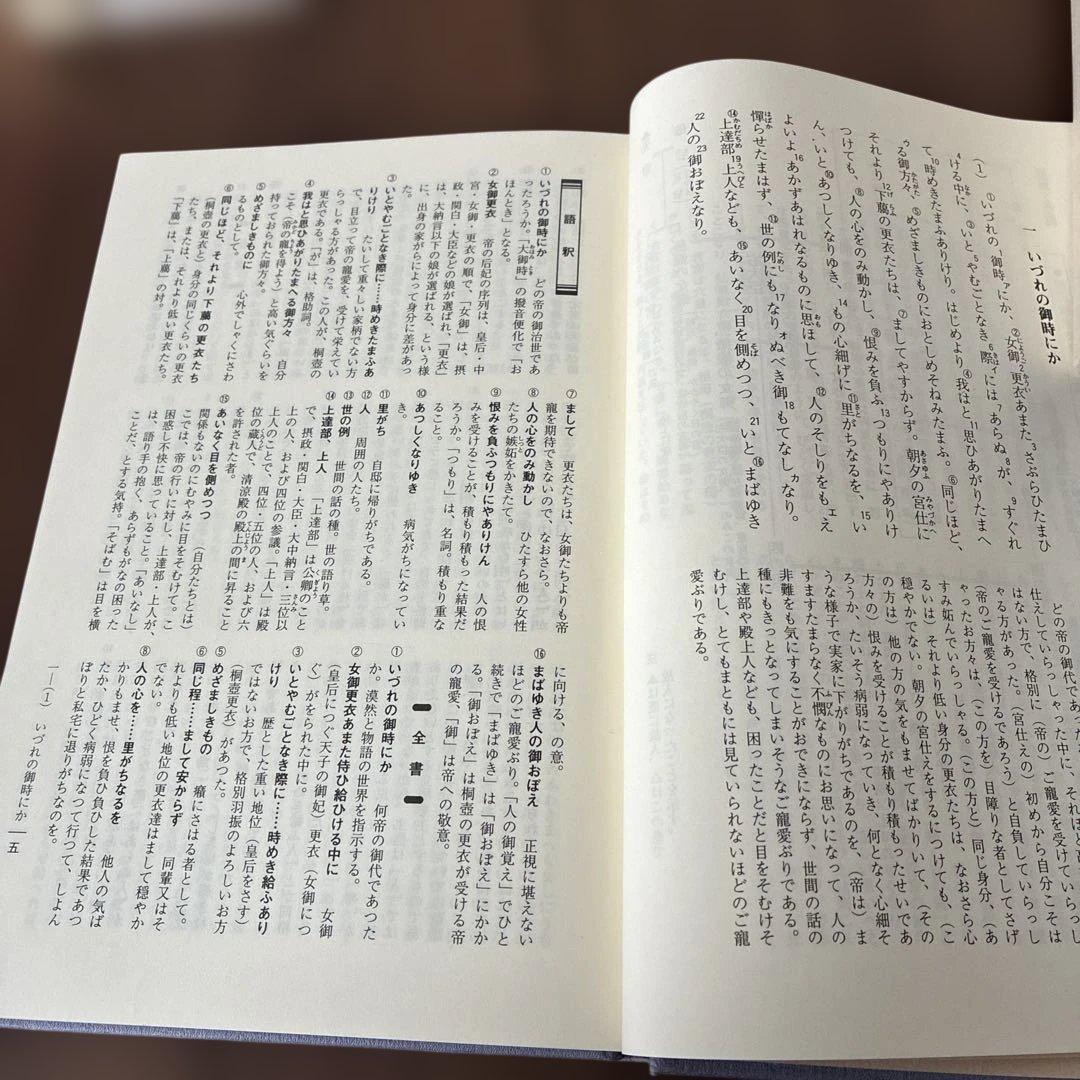 一　いづれの御時にか
(1)　①いづれの1御時ァにか、②女御2更衣あまた3さぶらひたまひ
4ける中に、ィ③いと5やむごとなき6際ィには7あらぬ8が、9すぐれ
て10時めきたまふありけり。はじめより④我はと11思ひあがりたまへ
ゥる御方々、⑤めざましきものにおとしめそねみたまふ。⑥同じほど、
それより12下﨟の更衣たちは、⑦ましてやすからず。朝夕の宮仕に
つけても、⑧人の心をのみ動かし、⑨恨みを負ふ13つもりにやありけ
ん、いと⑩あつしくなりゆき、14もの心細げに⑪里がちなるを、15い
よいよ16あかずあはれなるものに思ほして、⑫人のそしりをもェえ
憚らせたまはず、⑬世の例にも17なりォぬべき御18もてなしヵなり。
⑭上達部19上人なども、⑮あいなく20目を側めつつ、21いと⑯まばゆき
22人の23御おぼえなり。
どの帝の御代であっ
仕えしていらっしゃった中に、それほど
はない方で、格別に（帝の）ご寵愛を受けていらっし
ゃる方があった。（宮仕えの）初めから自分こそは
（帝のご寵愛を受けるであろう）と自負していらっし
ゃったお方々は、（この方を）目障りな者としてさげ
すみ妬んでいらっしゃる。（この方と）同じ身分、（あ
るいは）それより低い身分の更衣たちは、なおさら心
穏やかでない。朝夕の宮仕えをするにつけても、（こ
の方は）他の方の気をもませてばかりいて、（その
方々の）恨みを受けることが積もり積もったせいであ
ろうか、たいそう病弱になっていき、何となく心細そ
うな様子で実家に下がりがちであるのを、（帝は）ま
すますたまらなく不憫なものにお思いになって、人の
非難をも気にすることがおできにならず、世間の話の
種にもきっとなってしまいそうなご寵愛ぶりである。
上達部や殿上人なども、困ったことだと目をそむけそ
むけし、とてもまともには見ていられないほどのご寵
愛ぶりである。
語釈
①いづれの御時にか　どの帝の御治世であ
ったろうか。「大御時」の撥音便化で「お
ほんとき」となる。
②女御更衣　帝の后妃の序列は、皇后・中
宮・女御・更衣の順で、「女御」は、摂
政・関白・大臣などの娘が選ばれ、「更衣」
は、大納言以下の娘が選ばれる、という様
に、出身の家がらによって身分に差があっ
た。
③いとやむごとなき際に……時めきたまふあ
りけり　たいして重々しい家柄でない方
で、目立って帝の寵愛を、受けて栄えてい
らっしゃる方があった。この人が、桐壺の
更衣である。「が」は、格助詞。
④我はと思ひあがりたまへる御方々　自分
こそ（帝の寵を得よう）と高い気ぐらいを
持っておられた御方。
⑤めざましきものに　心外でしゃくにさわ
るものとして。
⑥同じほど、それより下﨟の更衣たち
（桐壺の更衣と）身分の同じくらいの更衣
たち、または、それより低い更衣たち。
「下﨟」は、「上﨟」の対。
⑦まして　更衣たちは、女御たちよりも帝
寵を期待できないので、なおさら。
⑧人の心をのみ動かし　ひたすら他の女性
たちの嫉妬をかきたて。
⑨恨みを負ふつもりにやありけん　人の恨
みを受けることが、積もり積もった結果だ
ろうか。「つもり」は、名詞。積もり重な
ること。
⑩あつしくなりゆき　病気がちになってい
き。
⑪里がち　自邸に帰りがちである。
⑫人　周囲の人々。
⑬世の例　世間の話の種。世の語り草。
⑭上達部、上人　「上達部」は公卿のこと
で、摂政・関白・大臣・大中納言・三位以
上の人、および四位の参議。「上人」は殿
上人のことで、四位・五位の人、および六
位の蔵人で、清涼殿の殿上の間に昇ること
を許された者。
⑮あいなく目を側めつつ　（自分たちとは）
関係もないのにむやみに目をそむけて。こ
こでは、帝の行いに対し、上達部・上人が、
困惑し不快に思っていること。「あいなし」
は、語り手の抱く、あらずもがなの困った
ことだ、とする気持。「そばむ」は目を横
に向ける、の意。
⑯まばゆき人の御おぼえ　正視に堪えない
ほどのご寵愛ぶり。「人の御覚え」でひと
続きで「まばゆき」は「御おぼえ」にかか
る。「御おぼえ」は桐壺の更衣が受ける帝
の寵愛、「御」は帝への敬意。
全書
①いづれの御時にか　何帝の御代であつた
か。漠然と物語の世界を指示する。
②女御更衣あまた侍ひ給ひける中に　女御
（皇后につぐ天子の御妃）更衣（女御につ
ぐ）がをられた中に。
③いとやむごとなき際に……時めき給ふあり
けり　歴とした重い地位（皇后をさす）
ではないお方で、格別羽振のよろしいお方
（桐壺更衣）があつた。
⑤めざましきもの　癪にさはる者として。
⑥同じ程……まして安からず　同輩又はそ
れよりも低い地位の更衣達はまして穏やか
でない。
⑧人の心を……里がちなるを　他人の気ば
かりもませ、恨を負ひ負ひした結果であつ
たか、ひどく病弱になつて行つて、しよん
ぼりと私宅に退りがちなのを。
一―(1)　いづれの御時にか　五